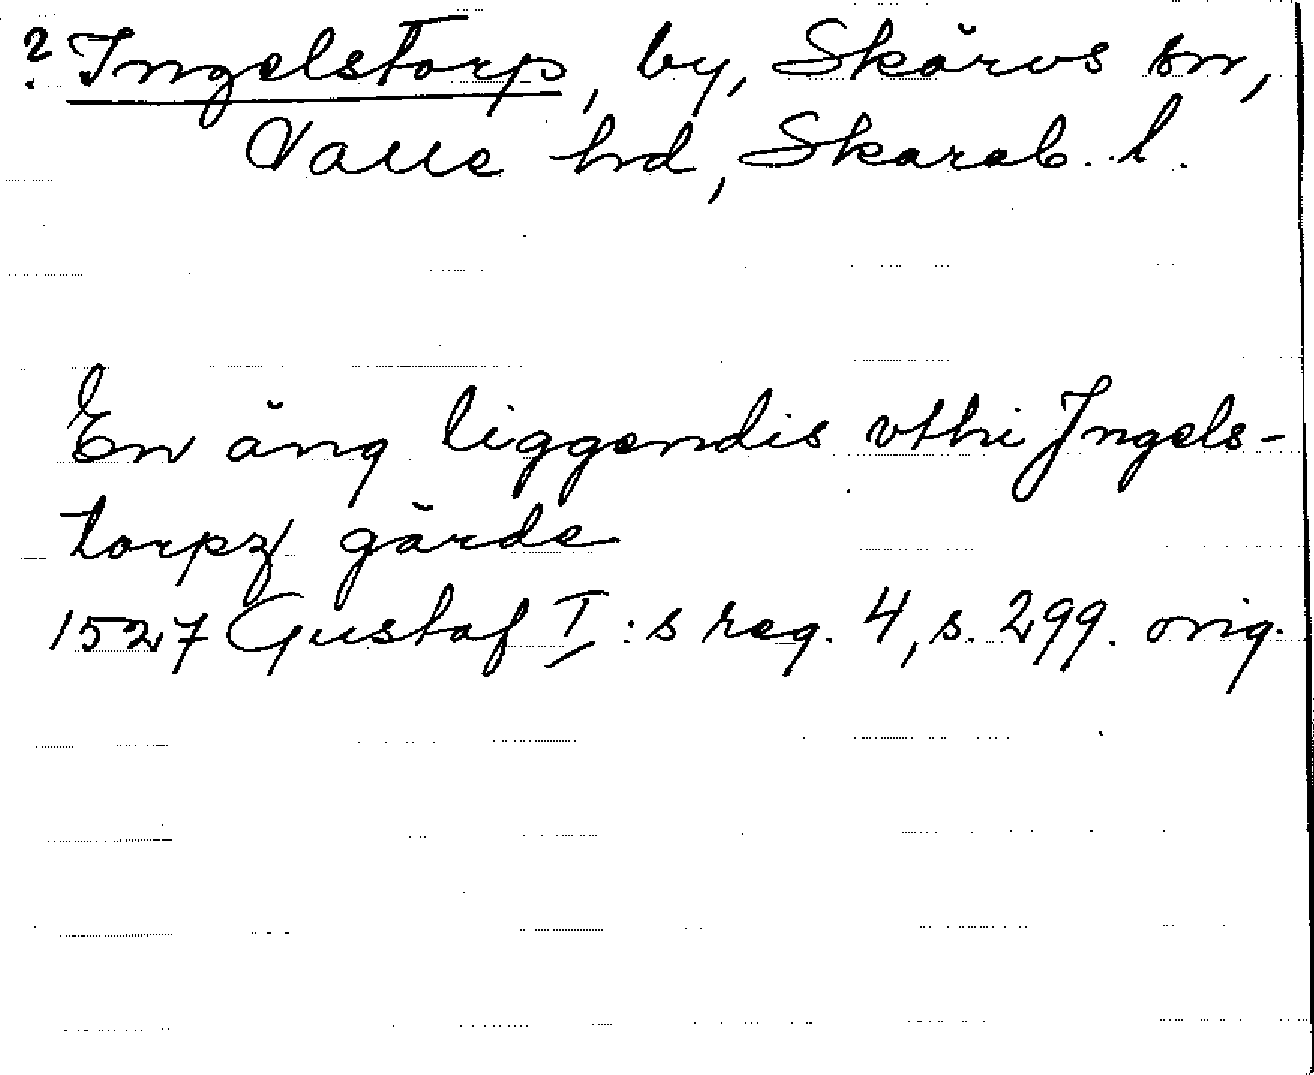 ? Ingelstorp, by, Skärvs sn,
Valle hd, Skarab. l.
En äng liggendis vthi Jngels-
torpz gärde
1527 Gustaf I:s reg. 4, s. 299. orig.